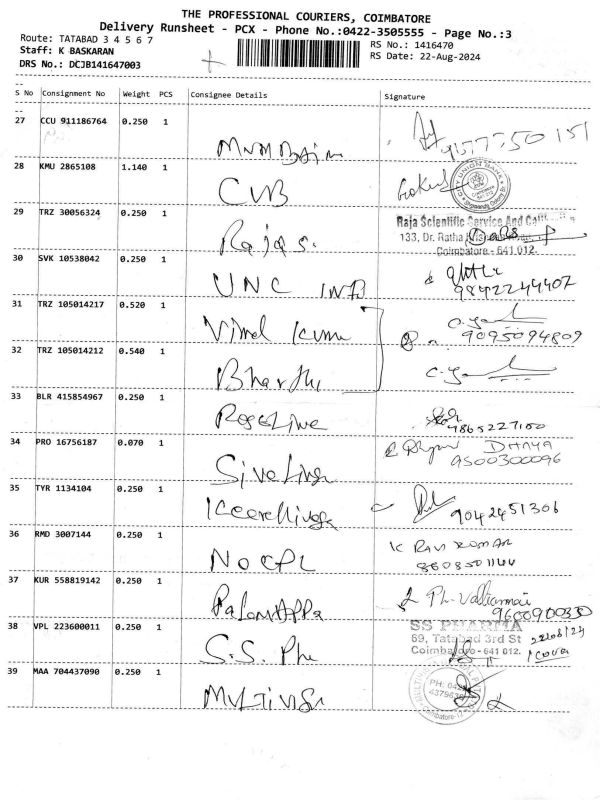 THE PROFESSIONAL COURIERS, COIMBATORE
Delivery Runsheet - PCX - Phone No.:0422-3505555 - Page No.:3
Route: TATABAD 3 4 5 6 7
RS No.: 1416470
Staff: K BASKARAN
RS Date: 22-Aug-2024
DRS No.: DCJB141647003
S No Consignment No Weight PCS Consignee Details Signature
27 CCU 911186764 0.250 1
28 KMU 2865108 1.140 1 CUB
29 TRZ 30056324 0.250 1 Raja S. Raja Scientific Service And
133, Dr. Ratha
Coimbatore - 641 012.
30 SVK 10538042 0.250 1 UNC INFO
9842244407
31 TRZ 105014217 0.520 1 Vimal Kumar
9095094809
32 TRZ 105014212 0.540 1 Bharthi
33 BLR 415854967 0.250 1
4865227100
34 PRO 16756187 0.070 1 Sivalinga DHAYA
9500300096
35 TYR 1134104 0.250 1 9042451306
36 RMD 3007144 0.250 1 NOCPL K RAVI KUMAR
8608501144
37 KUR 558819142 0.250 1 PalaniAppa Ph. Valliammai
9600900330
38 VPL 223600011 0.250 1 S.S. Pha SS PHARMA
69, Tatabad 3rd St 22/08/24
Coimbatore - 641 012.
39 MAA 704437090 0.250 1